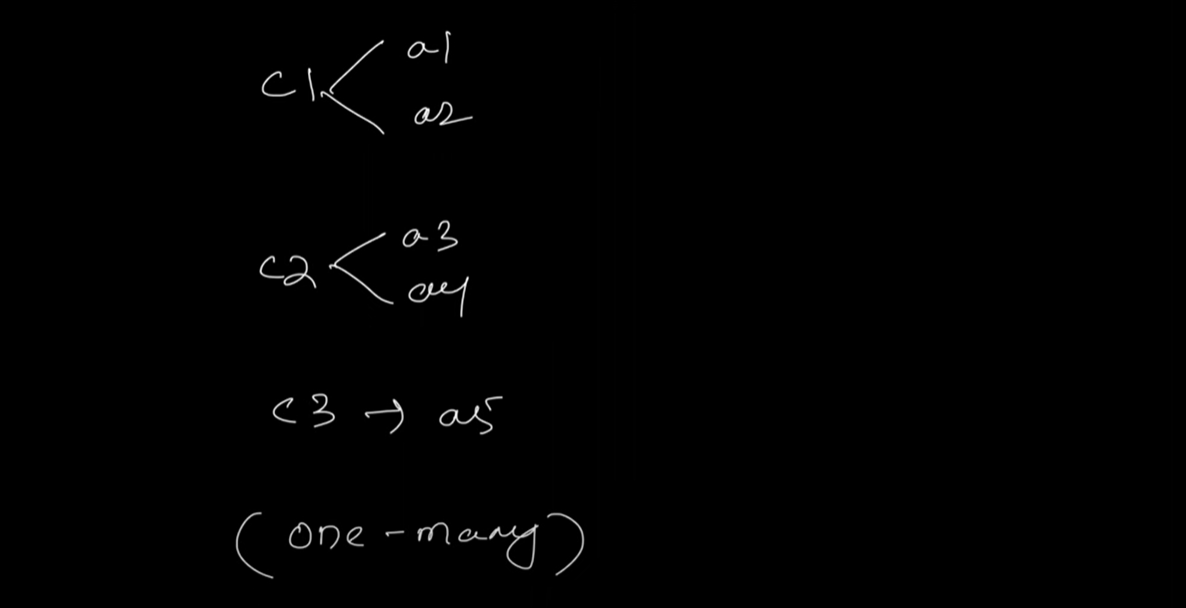 c1 a1
a2
c2 a3
a4
c3 → a5
(one-many)